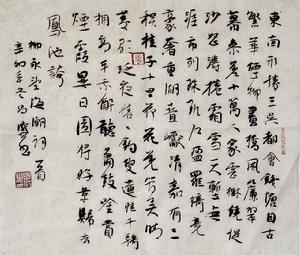 東南形勝三吳都會錢塘自古
繁華煙柳畫橋風簾翠
幕參差十萬人家雲樹繞堤
沙怒濤捲霜雪天塹無
涯市列珠璣戶盈羅綺競
豪奢重湖疊巘清嘉有三
秋桂子十里荷花羌管弄晴
菱歌泛夜釣叟蓮娃千騎
擁高牙乘醉聽簫鼓吟賞
煙霞異日圖將好景歸去
鳳池誇
柳永望海潮詞一首
辛卯年冬